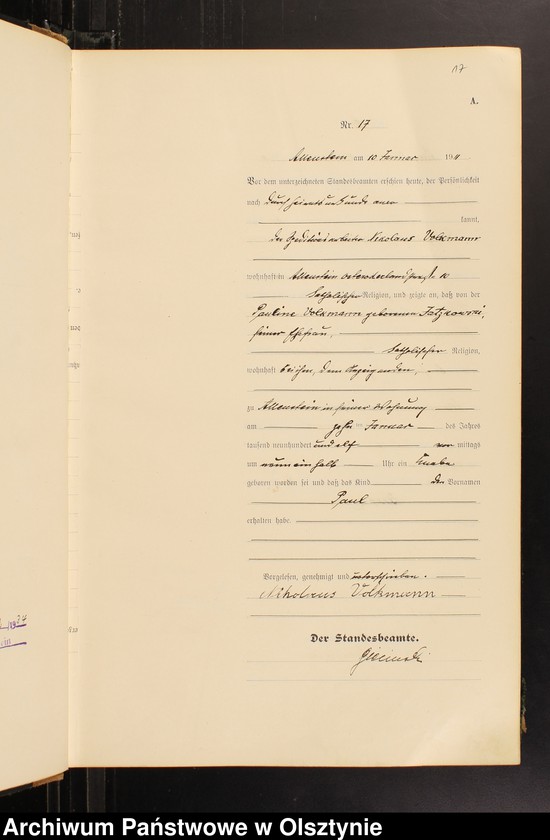 17
A.
Nr. 17
Allenstein am 10 Januar 1911
Vor dem unterzeichneten Standesbeamten erschien heute, der Persönlichkeit
nach durch Heiratsurkunde aner
kannt,
der Speditionsarbeiter Nikolaus Volkmann
wohnhaft in Allenstein 10
katholischer Religion, und zeigte an, daß von der
Pauline Volkmann geborenen
seiner Ehefrau,
katholischer Religion,
wohnhaft bei ihm, dem Anzeigenden,
zu Allenstein in seiner Wohnung
am zehnten Januar des Jahres
tausend neunhundert und elf vor mittags
um neun ein halb Uhr ein Knabe
geboren worden sei und daß das Kind den Vornamen
Paul
erhalten habe.
Vorgelesen, genehmigt und unterschrieben.
Nikolaus Volkmann
Der Standesbeamte.
Archiwum Państwowe w Olsztynie